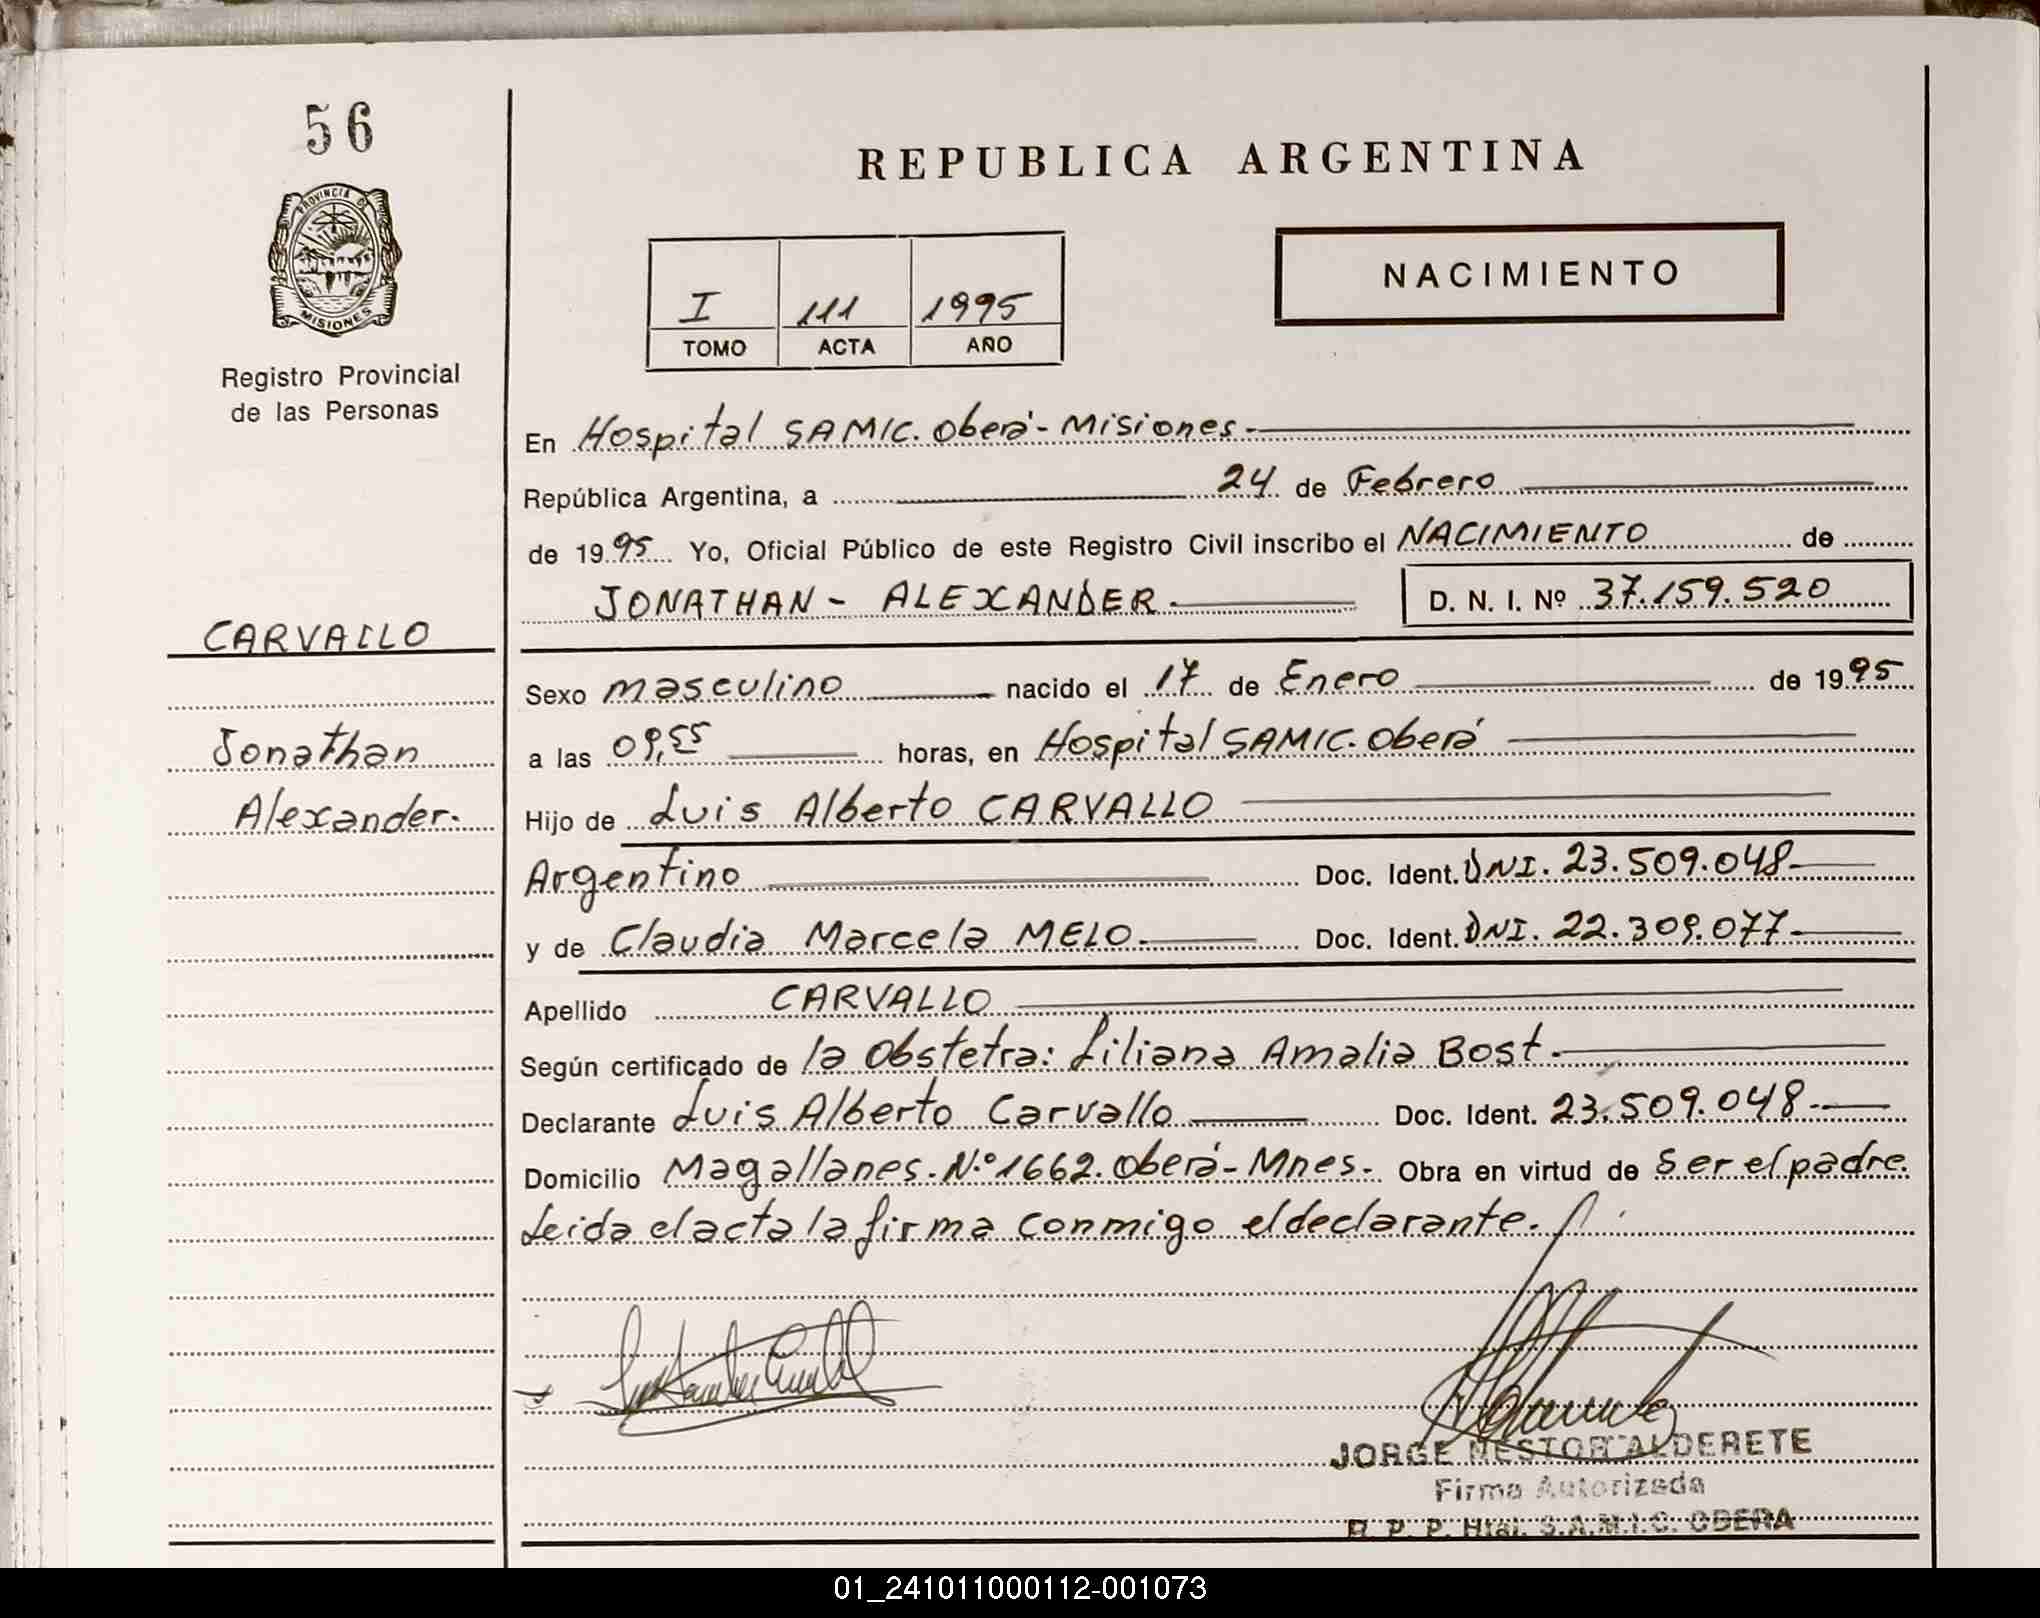 56
PROVINCIA DE
MISIONES
Registro Provincial
de las Personas
CARVALLO
Jonathan
Alexander.
REPUBLICA ARGENTINA
I 111 1995
TOMO ACTA AÑO
NACIMIENTO
En Hospital SAMIC. Oberá - Misiones.
República Argentina, a 24 de Febrero
de 1995 Yo, Oficial Público de este Registro Civil inscribo el NACIMIENTO de
JONATHAN - ALEXANDER. D. N. I. Nº 37.159.520
Sexo masculino nacido el 17 de Enero de 1995
a las 09,55 horas, en Hospital SAMIC. Oberá
Hijo de Luis Alberto CARVALLO
Argentino Doc. Ident. DNI. 23.509.048-
y de Claudia Marcela MELO. Doc. Ident. DNI. 22.309.077-
Apellido CARVALLO
Según certificado de la Obstetra: Liliana Amalia Bost.
Declarante Luis Alberto Carvallo Doc. Ident. 23.509.048-
Domicilio Magallanes. N.º 1662. Oberá - Mnes. Obra en virtud de ser el padre.
Leida el acta la firma conmigo el declarante.
JORGE NESTOR ALDERETE
Firma Autorizada
R. P. P. Htal. S.A.M.I.C. OBERA
01_241011000112-001073